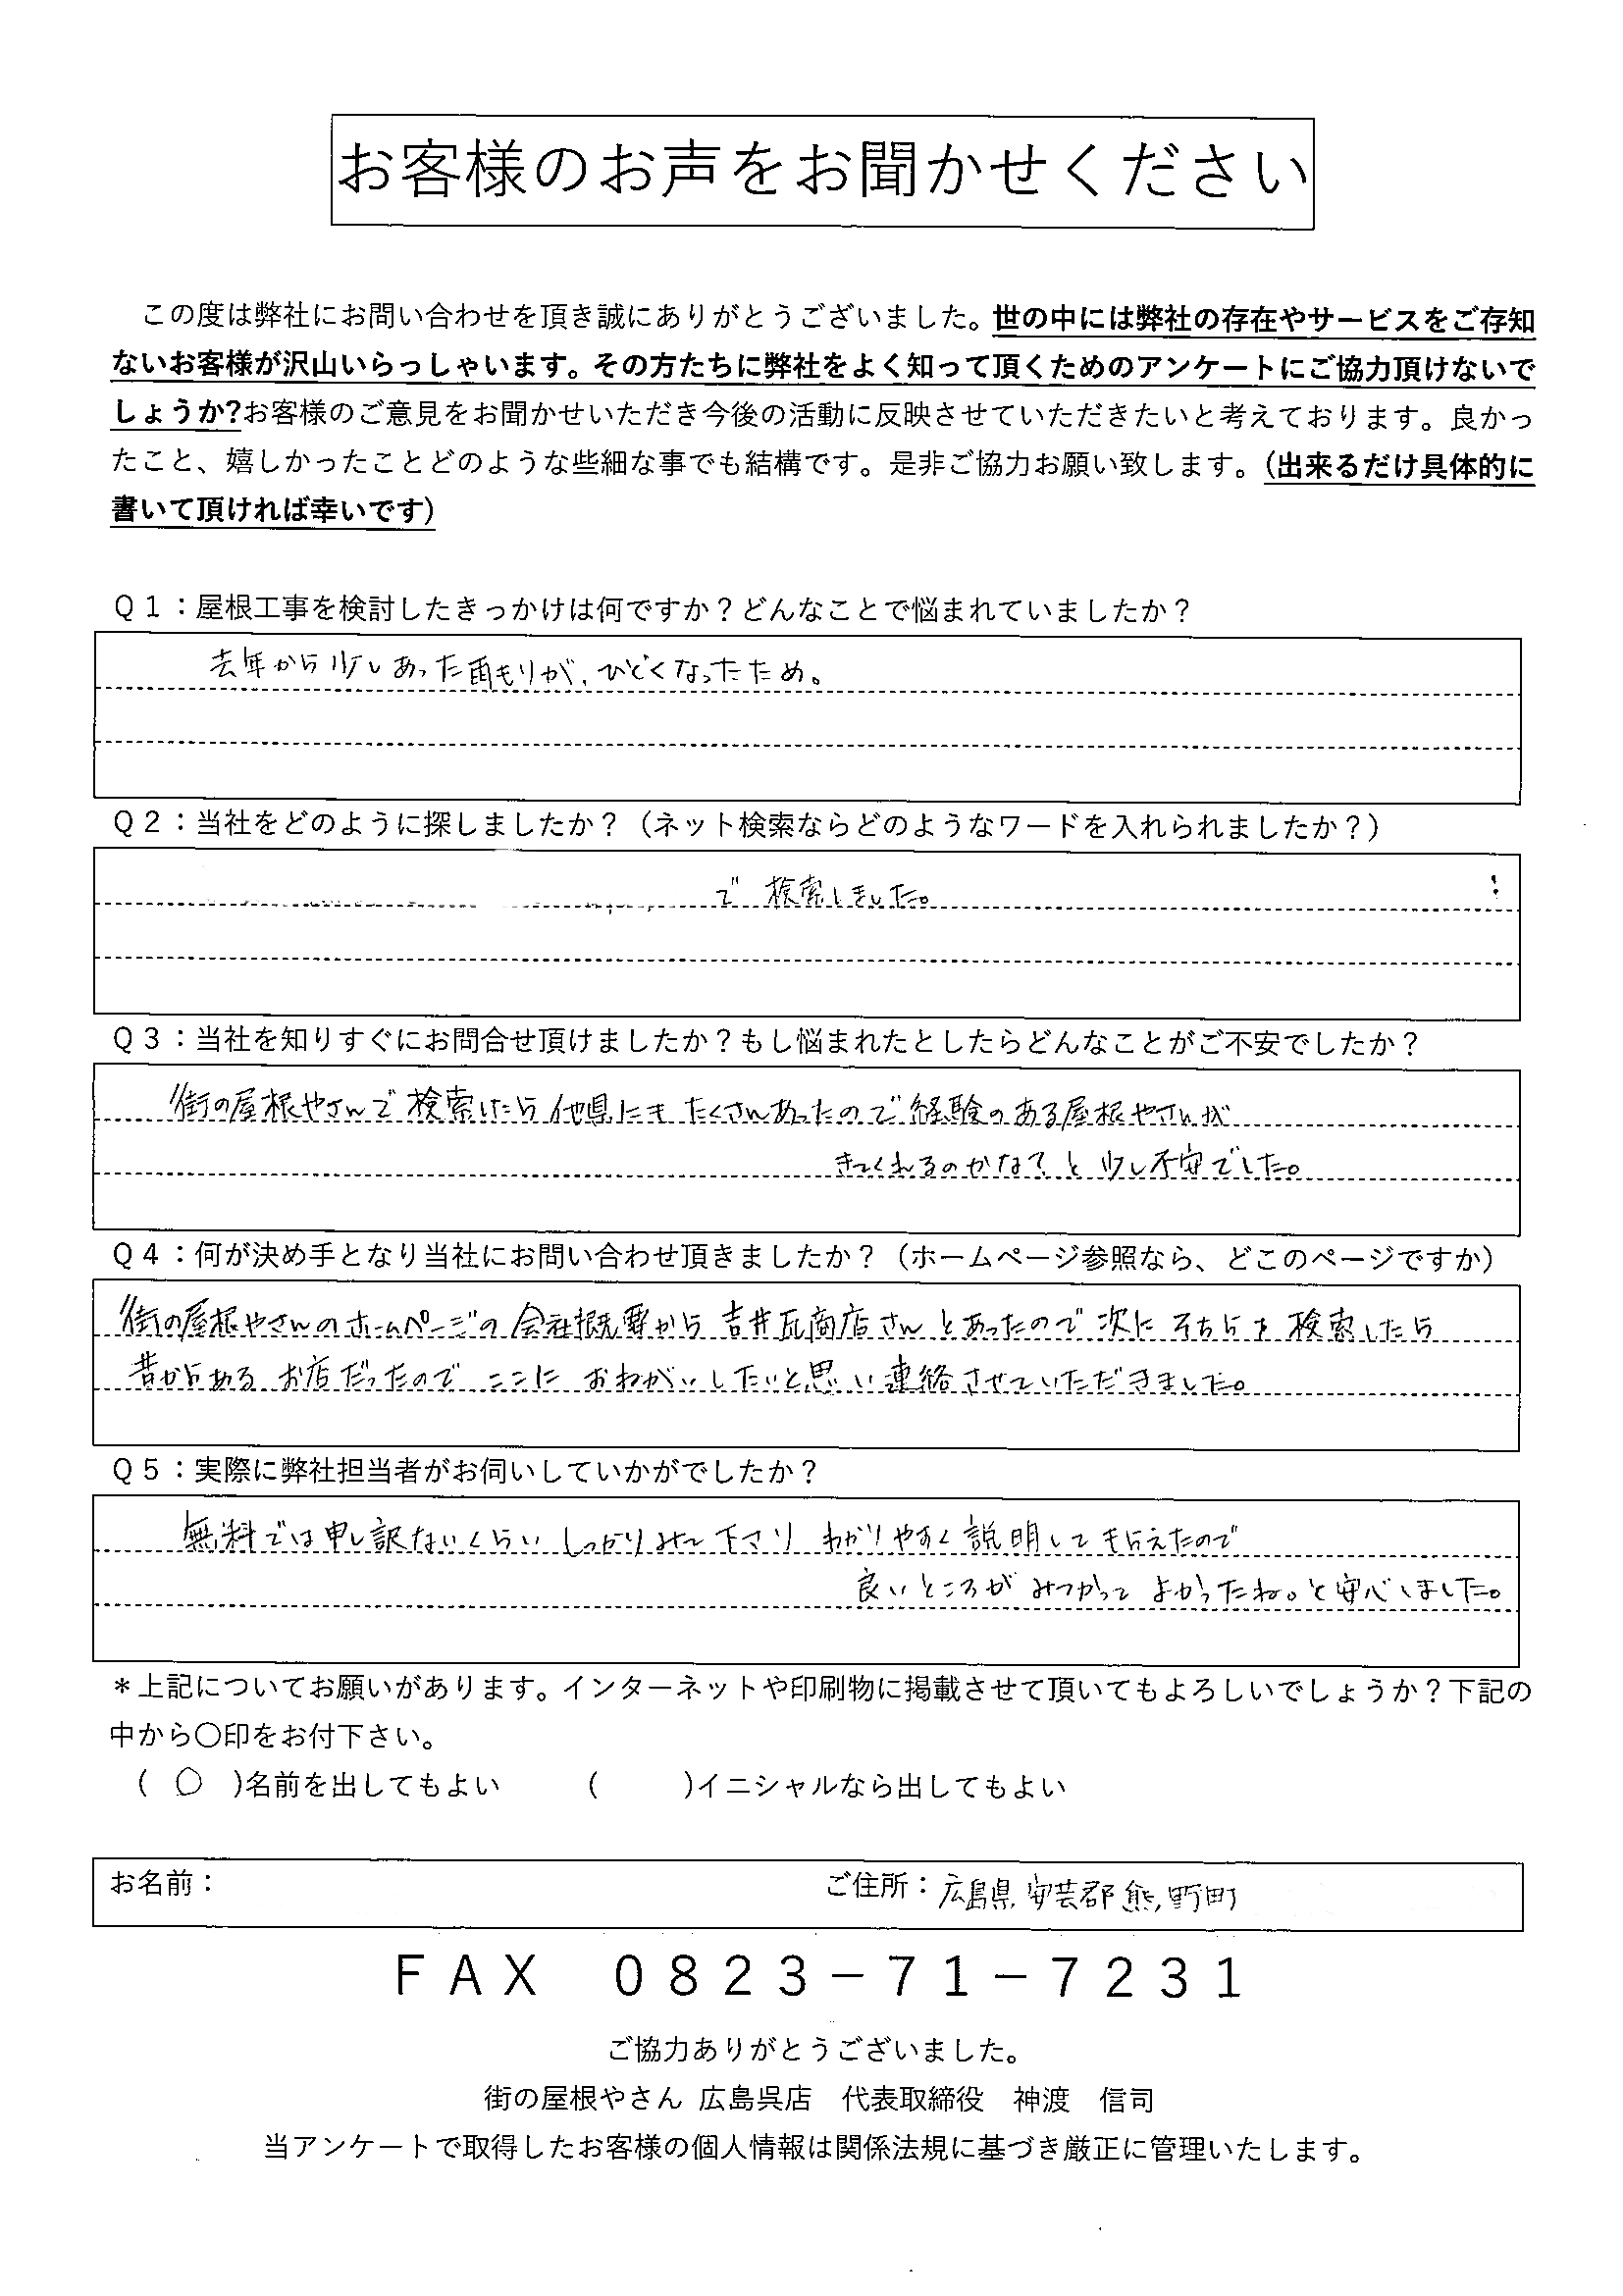 お客様のお声をお聞かせください
この度は弊社にお問い合わせを頂き誠にありがとうございました。世の中には弊社の存在やサービスをご存知
ないお客様が沢山いらっしゃいます。その方たちに弊社をよく知って頂くためのアンケートにご協力頂けないで
しょうか?お客様のご意見をお聞かせいただき今後の活動に反映させていただきたいと考えております。良かっ
たこと、嬉しかったことどのような些細な事でも結構です。是非ご協力お願い致します。(出来るだけ具体的に
書いて頂ければ幸いです)
Q1：屋根工事を検討したきっかけは何ですか？どんなことで悩まれていましたか？
去年から少しあった雨もりが、ひどくなったため。
Q2：当社をどのように探しましたか？（ネット検索ならどのようなワードを入れられましたか？）
で 検索しました。
Q3：当社を知りすぐにお問合せ頂けましたか？もし悩まれたとしたらどんなことがご不安でしたか？
〃街の屋根やさんで検索したら他県にもたくさんあったので経験のある屋根やさんが
きてくれるのかな？と少し不安でした。
Q4：何が決め手となり当社にお問い合わせ頂きましたか？（ホームページ参照なら、どこのページですか）
〃街の屋根やさんのホームページの会社概要から吉井瓦商店さんとあったので次にそちらを検索したら
昔からあるお店だったのでここにおねがいしたいと思い連絡させていただきました。
Q5：実際に弊社担当者がお伺いしていかがでしたか？
無料では申し訳ないくらいしっかりみて下さりわかりやすく説明してもらえたので
良いところがみつかってよかったね。と安心しました。
＊上記についてお願いがあります。インターネットや印刷物に掲載させて頂いてもよろしいでしょうか？下記の
中から〇印をお付下さい。
( ○ )名前を出してもよい ( )イニシャルなら出してもよい
お名前： ご住所：広島県安芸郡熊野町
FAX 0823－71－7231
ご協力ありがとうございました。
街の屋根やさん 広島呉店 代表取締役 神渡 信司
当アンケートで取得したお客様の個人情報は関係法規に基づき厳正に管理いたします。